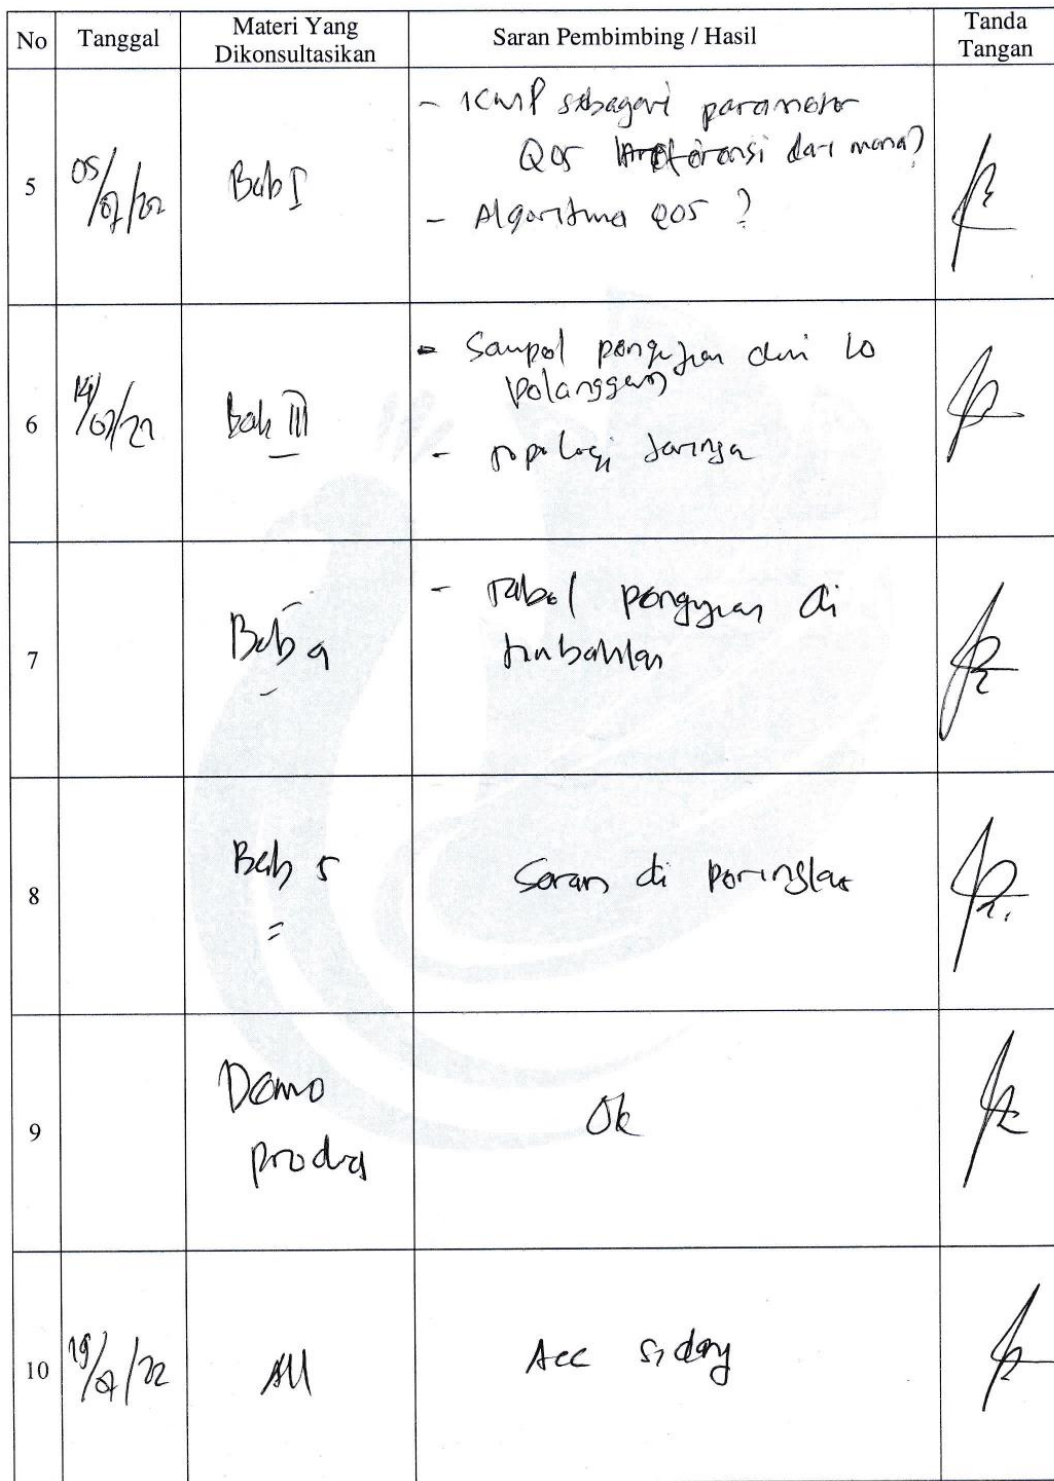 No Tanggal Materi Yang Dikonsultasikan Saran Pembimbing / Hasil Tanda Tangan
5 05/07/22 Bab I - ICMP sebagai parameter
QOS referensi dari mana?
- Algoritma QOS ?
6 14/07/22 Bab III - Sampel pengujian dari 10
pelanggan
- Topologi Jaringa
7 Bab 4 - Tabel pengujian di
tambahkan
8 Bab 5 Saran di peringkas
9 Demo
produk
Ok
10 19/07/22 All Acc sidang